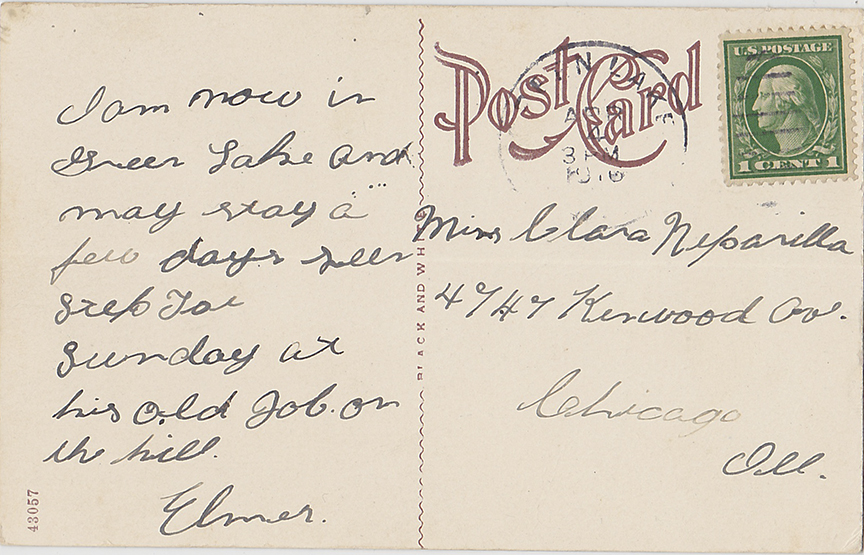 I am now in
Green Lake and
may stay a
few days seen
Sunday at
his old Job. on
the hill.
Elmer.
43057
BLACK AND WHITE
Post Card
LAKE
3 PM
1916
U.S. POSTAGE
1 CENT 1
Miss Clara
4747 Kenwood Av.
Chicago
Ill.